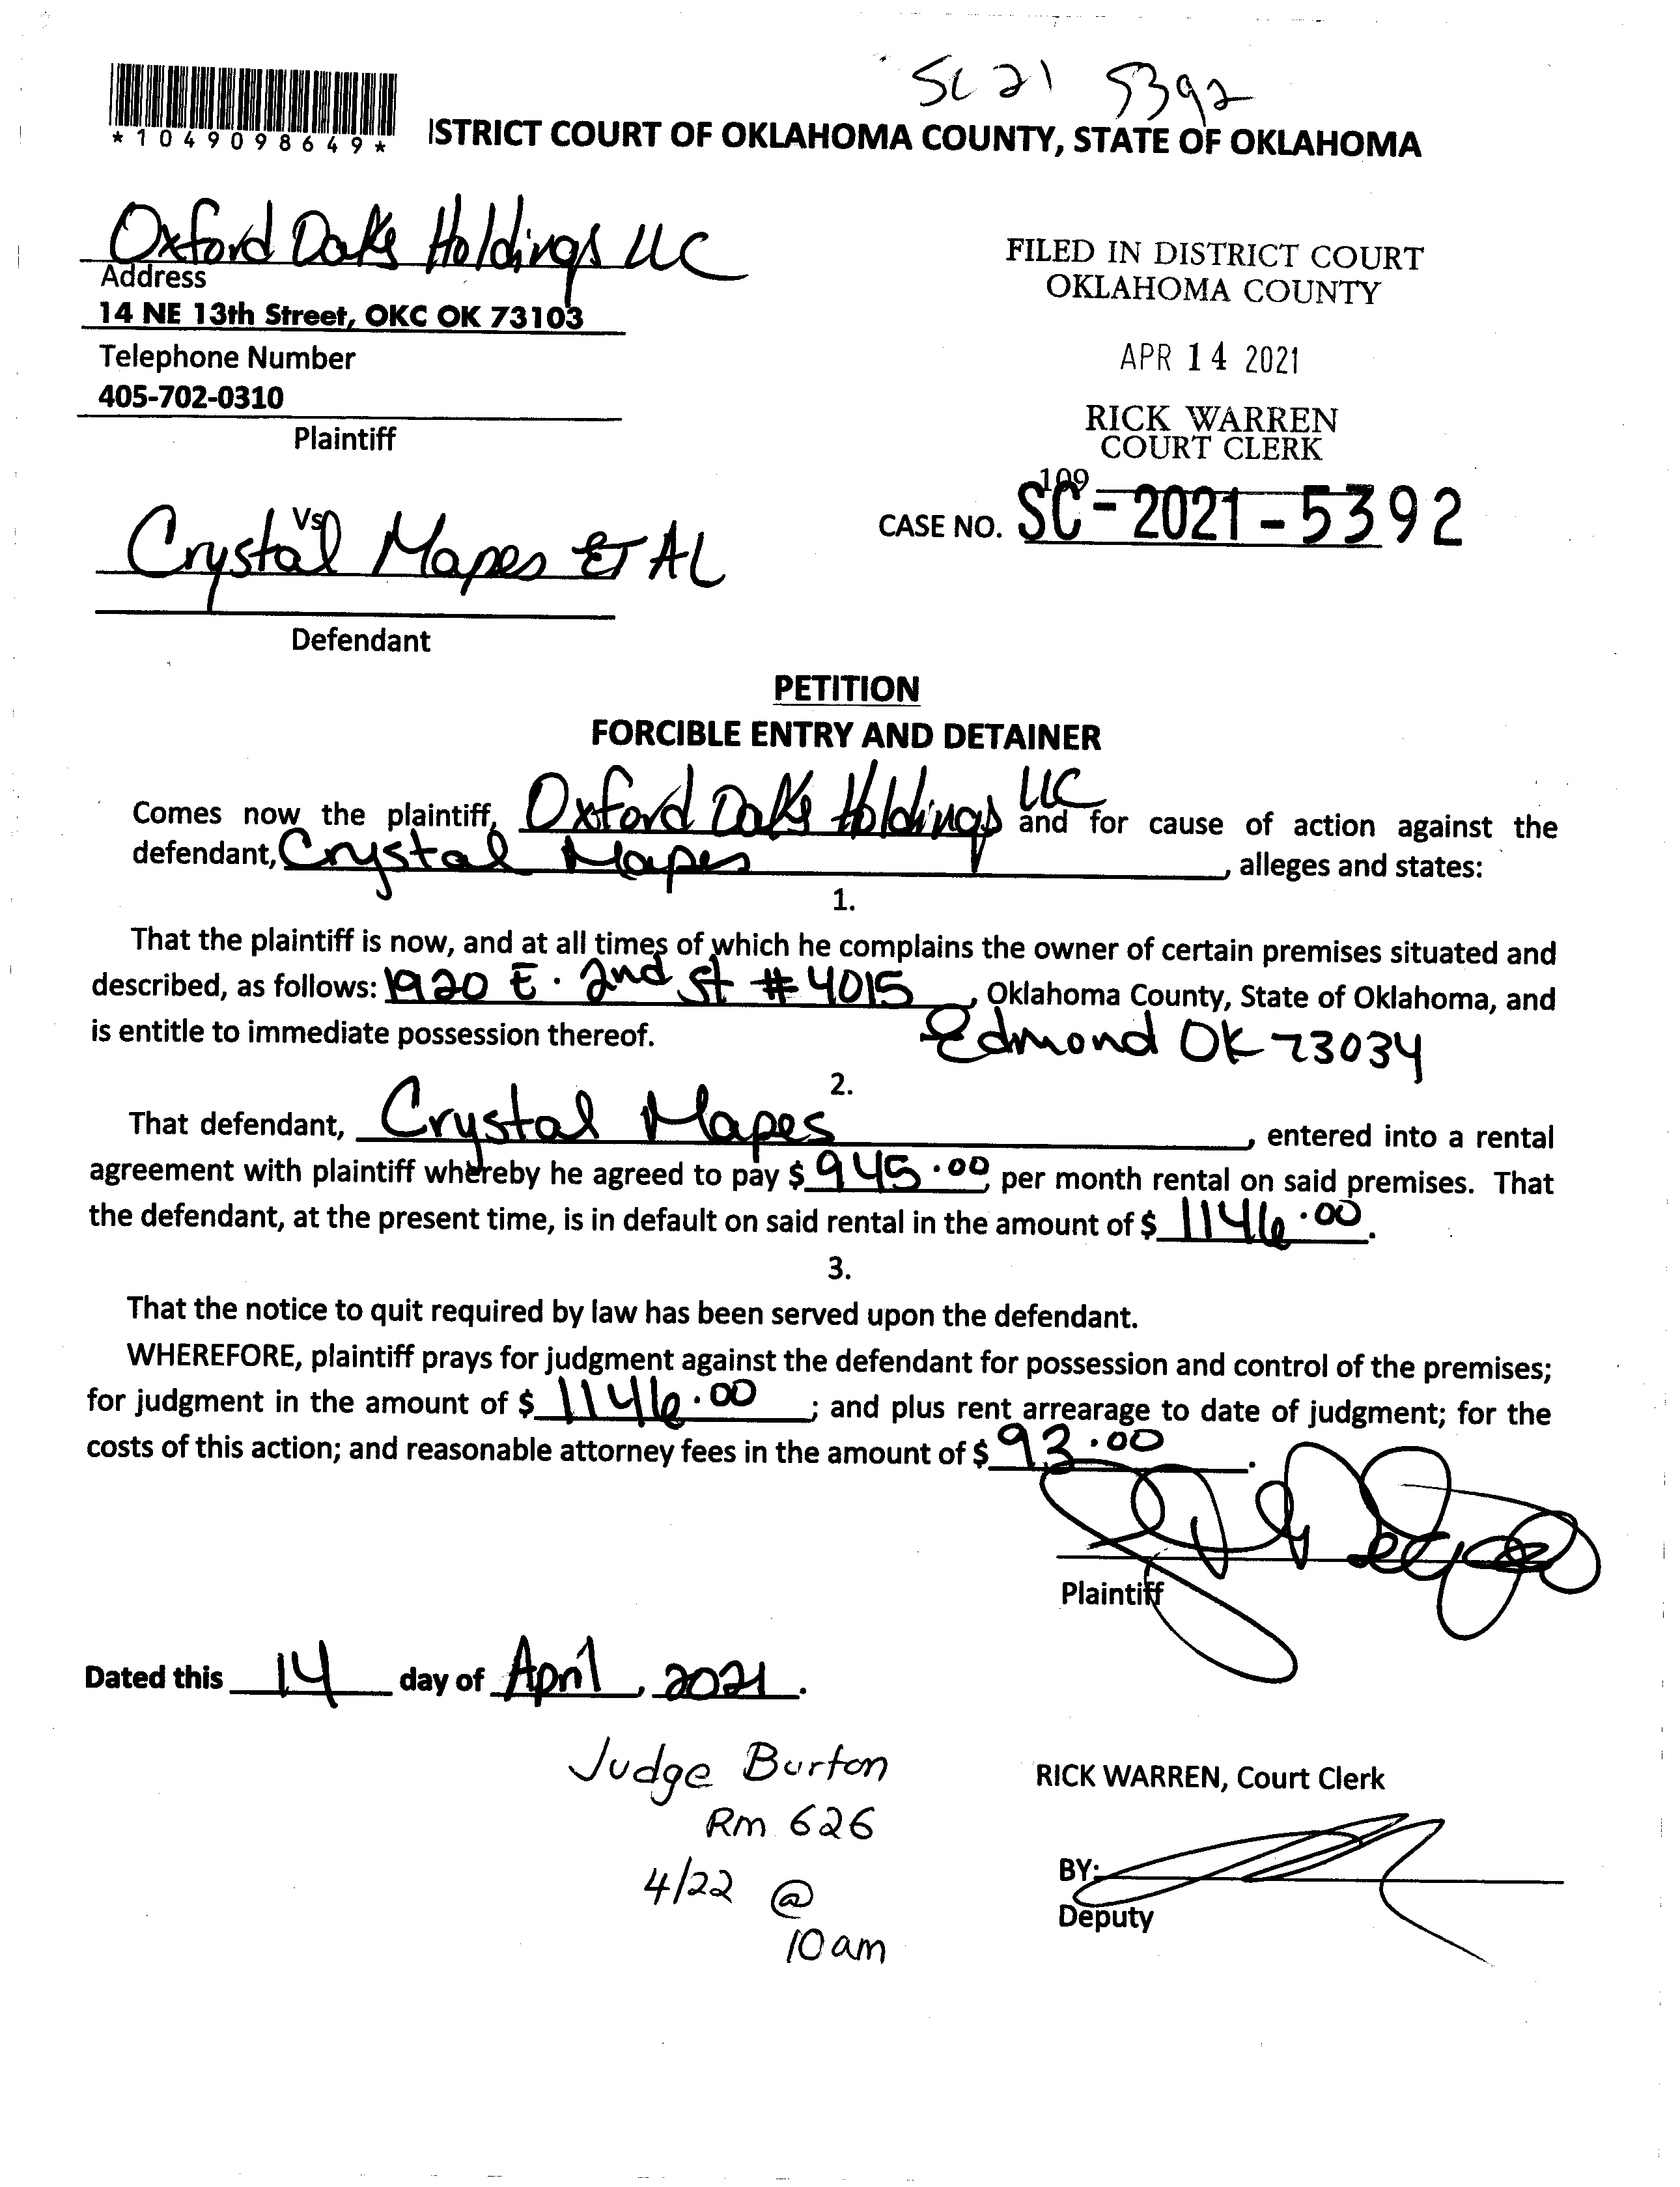 SC 21 5392
*1049098649*
ISTRICT COURT OF OKLAHOMA COUNTY, STATE OF OKLAHOMA
Oxford Oaks Holdings LLC
Address
14 NE 13th Street, OKC OK 73103
Telephone Number
405-702-0310
Plaintiff
FILED IN DISTRICT COURT
OKLAHOMA COUNTY
APR 14 2021
RICK WARREN
COURT CLERK
109
CASE NO. SC-2021-5392
Vs
Crystal Mapes ET AL
Defendant
PETITION
FORCIBLE ENTRY AND DETAINER
Comes now the plaintiff, Oxford Oaks Holdings LLC and for cause of action against the
defendant, Crystal Mapes, alleges and states:
1.
That the plaintiff is now, and at all times of which he complains the owner of certain premises situated and
described, as follows: 1920 E. 2nd St #4015, Oklahoma County, State of Oklahoma, and
is entitle to immediate possession thereof. Edmond OK 73034
2.
That defendant, Crystal Mapes, entered into a rental
agreement with plaintiff whereby he agreed to pay $ 945.00 per month rental on said premises. That
the defendant, at the present time, is in default on said rental in the amount of $ 1146.00.
3.
That the notice to quit required by law has been served upon the defendant.
WHEREFORE, plaintiff prays for judgment against the defendant for possession and control of the premises;
for judgment in the amount of $ 1146.00; and plus rent arrearage to date of judgment; for the
costs of this action; and reasonable attorney fees in the amount of $ 93.00.
Plaintiff
Dated this 14 day of April, 2021.
Judge Burton
Rm 626
4/22 @
10am
RICK WARREN, Court Clerk
BY:
Deputy